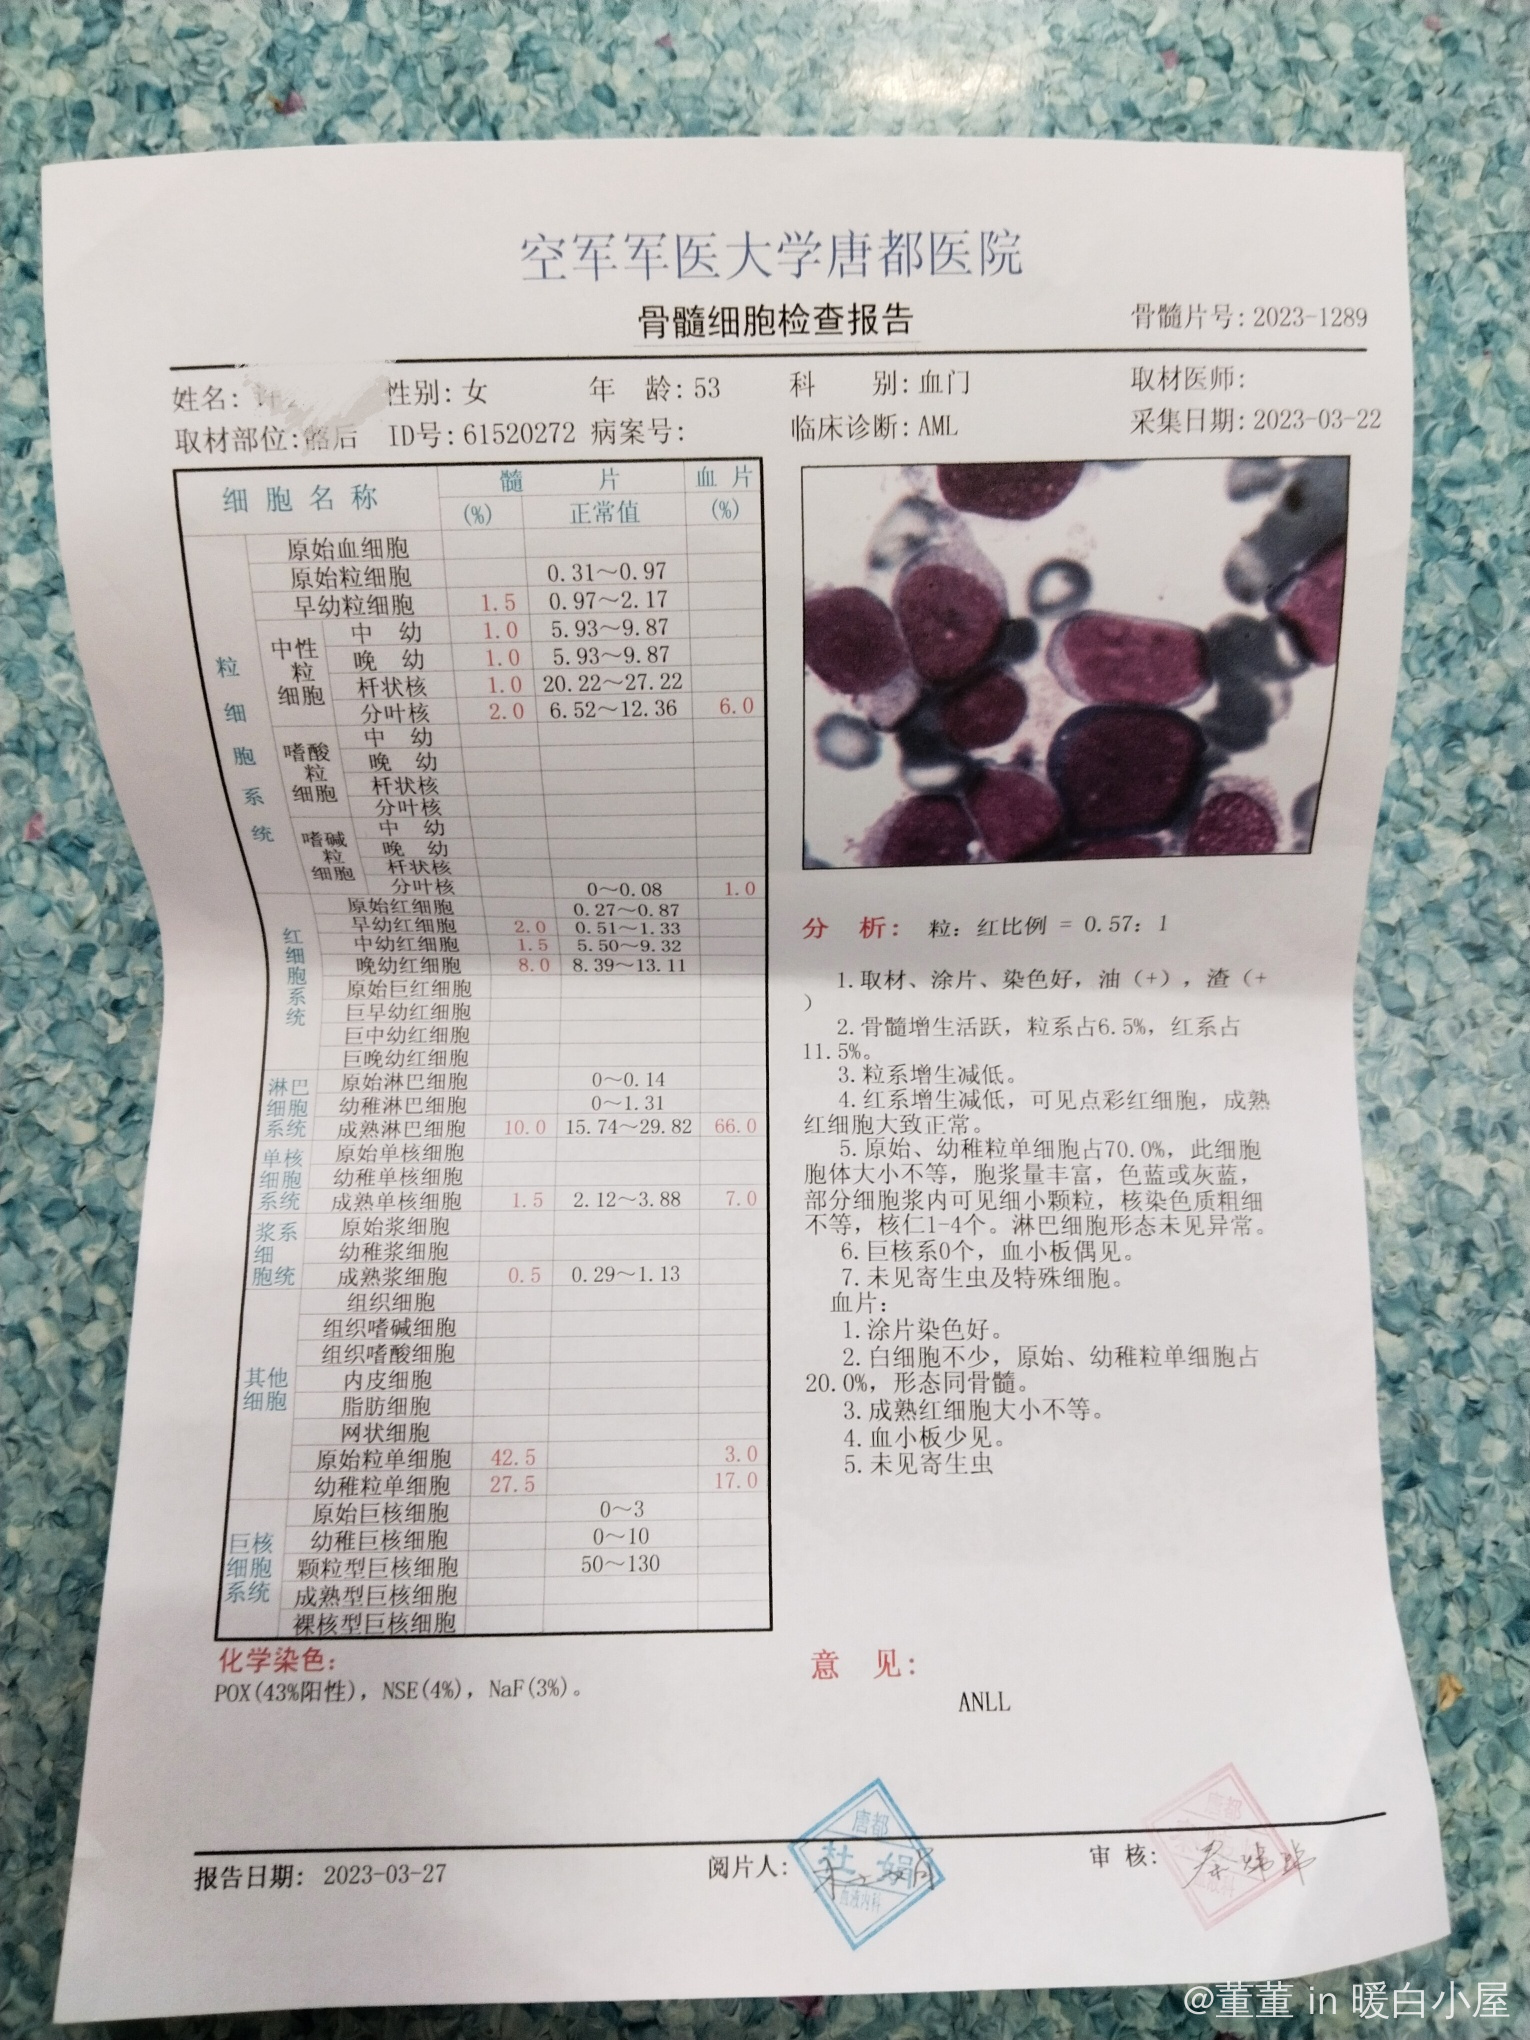 空军军医大学唐都医院
骨髓细胞检查报告
骨髓片号: 2023-1289
姓名: 性别: 女 年 龄: 53 科 别: 血门 取材医师:
取材部位: 髂后 ID号: 61520272 病案号: 临床诊断: AML 采集日期: 2023-03-22
细 胞 名 称 髓 片 血 片
(%) 正常值 (%)
粒 细 胞 系 统
原始血细胞
原始粒细胞 0.31~0.97
早幼粒细胞 1.5 0.97~2.17
中性粒细胞
中 幼 1.0 5.93~9.87
晚 幼 1.0 5.93~9.87
杆状核 1.0 20.22~27.22
分叶核 2.0 6.52~12.36 6.0
嗜酸粒细胞
中 幼
晚 幼
杆状核
分叶核
嗜碱粒细胞
中 幼
晚 幼
杆状核
分叶核 0~0.08 1.0
红细胞系统
原始红细胞 0.27~0.87
早幼红细胞 2.0 0.51~1.33
中幼红细胞 1.5 5.50~9.32
晚幼红细胞 8.0 8.39~13.11
原始巨红细胞
巨早幼红细胞
巨中幼红细胞
巨晚幼红细胞
淋巴细胞系统
原始淋巴细胞 0~0.14
幼稚淋巴细胞 0~1.31
成熟淋巴细胞 10.0 15.74~29.82 66.0
单核细胞系统
原始单核细胞
幼稚单核细胞
成熟单核细胞 1.5 2.12~3.88 7.0
浆系细胞统
原始浆细胞
幼稚浆细胞
成熟浆细胞 0.5 0.29~1.13
其他细胞
组织细胞
组织嗜碱细胞
组织嗜酸细胞
内皮细胞
脂肪细胞
网状细胞
原始粒单细胞 42.5 3.0
幼稚粒单细胞 27.5 17.0
巨核细胞系统
原始巨核细胞 0~3
幼稚巨核细胞 0~10
颗粒型巨核细胞 50~130
成熟型巨核细胞
裸核型巨核细胞
化学染色:
POX(43%阳性), NSE(4%), NaF(3%)。
分 析: 粒: 红比例 = 0.57: 1
1.取材、涂片、染色好, 油 (+) , 渣 (+
)
2.骨髓增生活跃, 粒系占6.5%, 红系占
11.5%。
3.粒系增生减低。
4.红系增生减低, 可见点彩红细胞, 成熟
红细胞大致正常。
5.原始、幼稚粒单细胞占70.0%, 此细胞
胞体大小不等, 胞浆量丰富, 色蓝或灰蓝,
部分细胞浆内可见细小颗粒, 核染色质粗细
不等, 核仁1-4个。淋巴细胞形态未见异常。
6.巨核系0个, 血小板偶见。
7.未见寄生虫及特殊细胞。
血片:
1.涂片染色好。
2.白细胞不少, 原始、幼稚粒单细胞占
20.0%, 形态同骨髓。
3.成熟红细胞大小不等。
4.血小板少见。
5.未见寄生虫
意 见:
ANLL
报告日期: 2023-03-27 阅片人: 审 核:
唐都
杜 娟
血液内科
唐都
@董董 in 暖白小屋